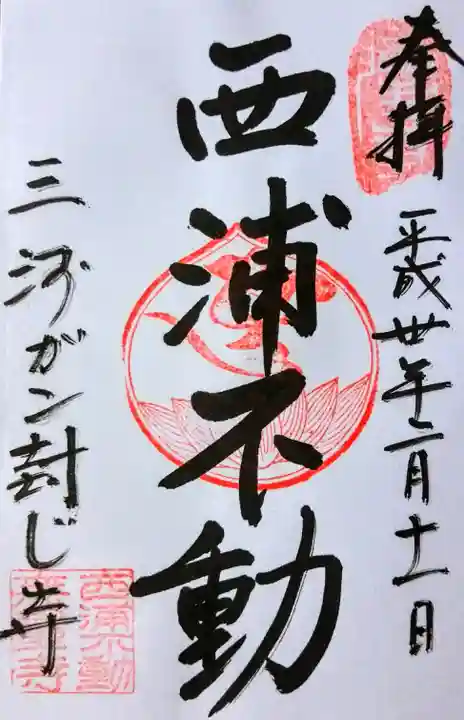 奉拝
平成卅年二月十一日
西浦不動
三河ガン封じ寺
西浦不動